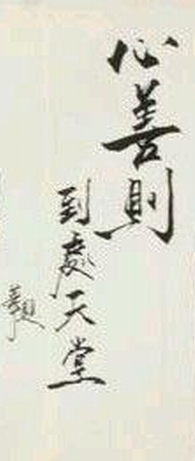 心善則
到處天堂